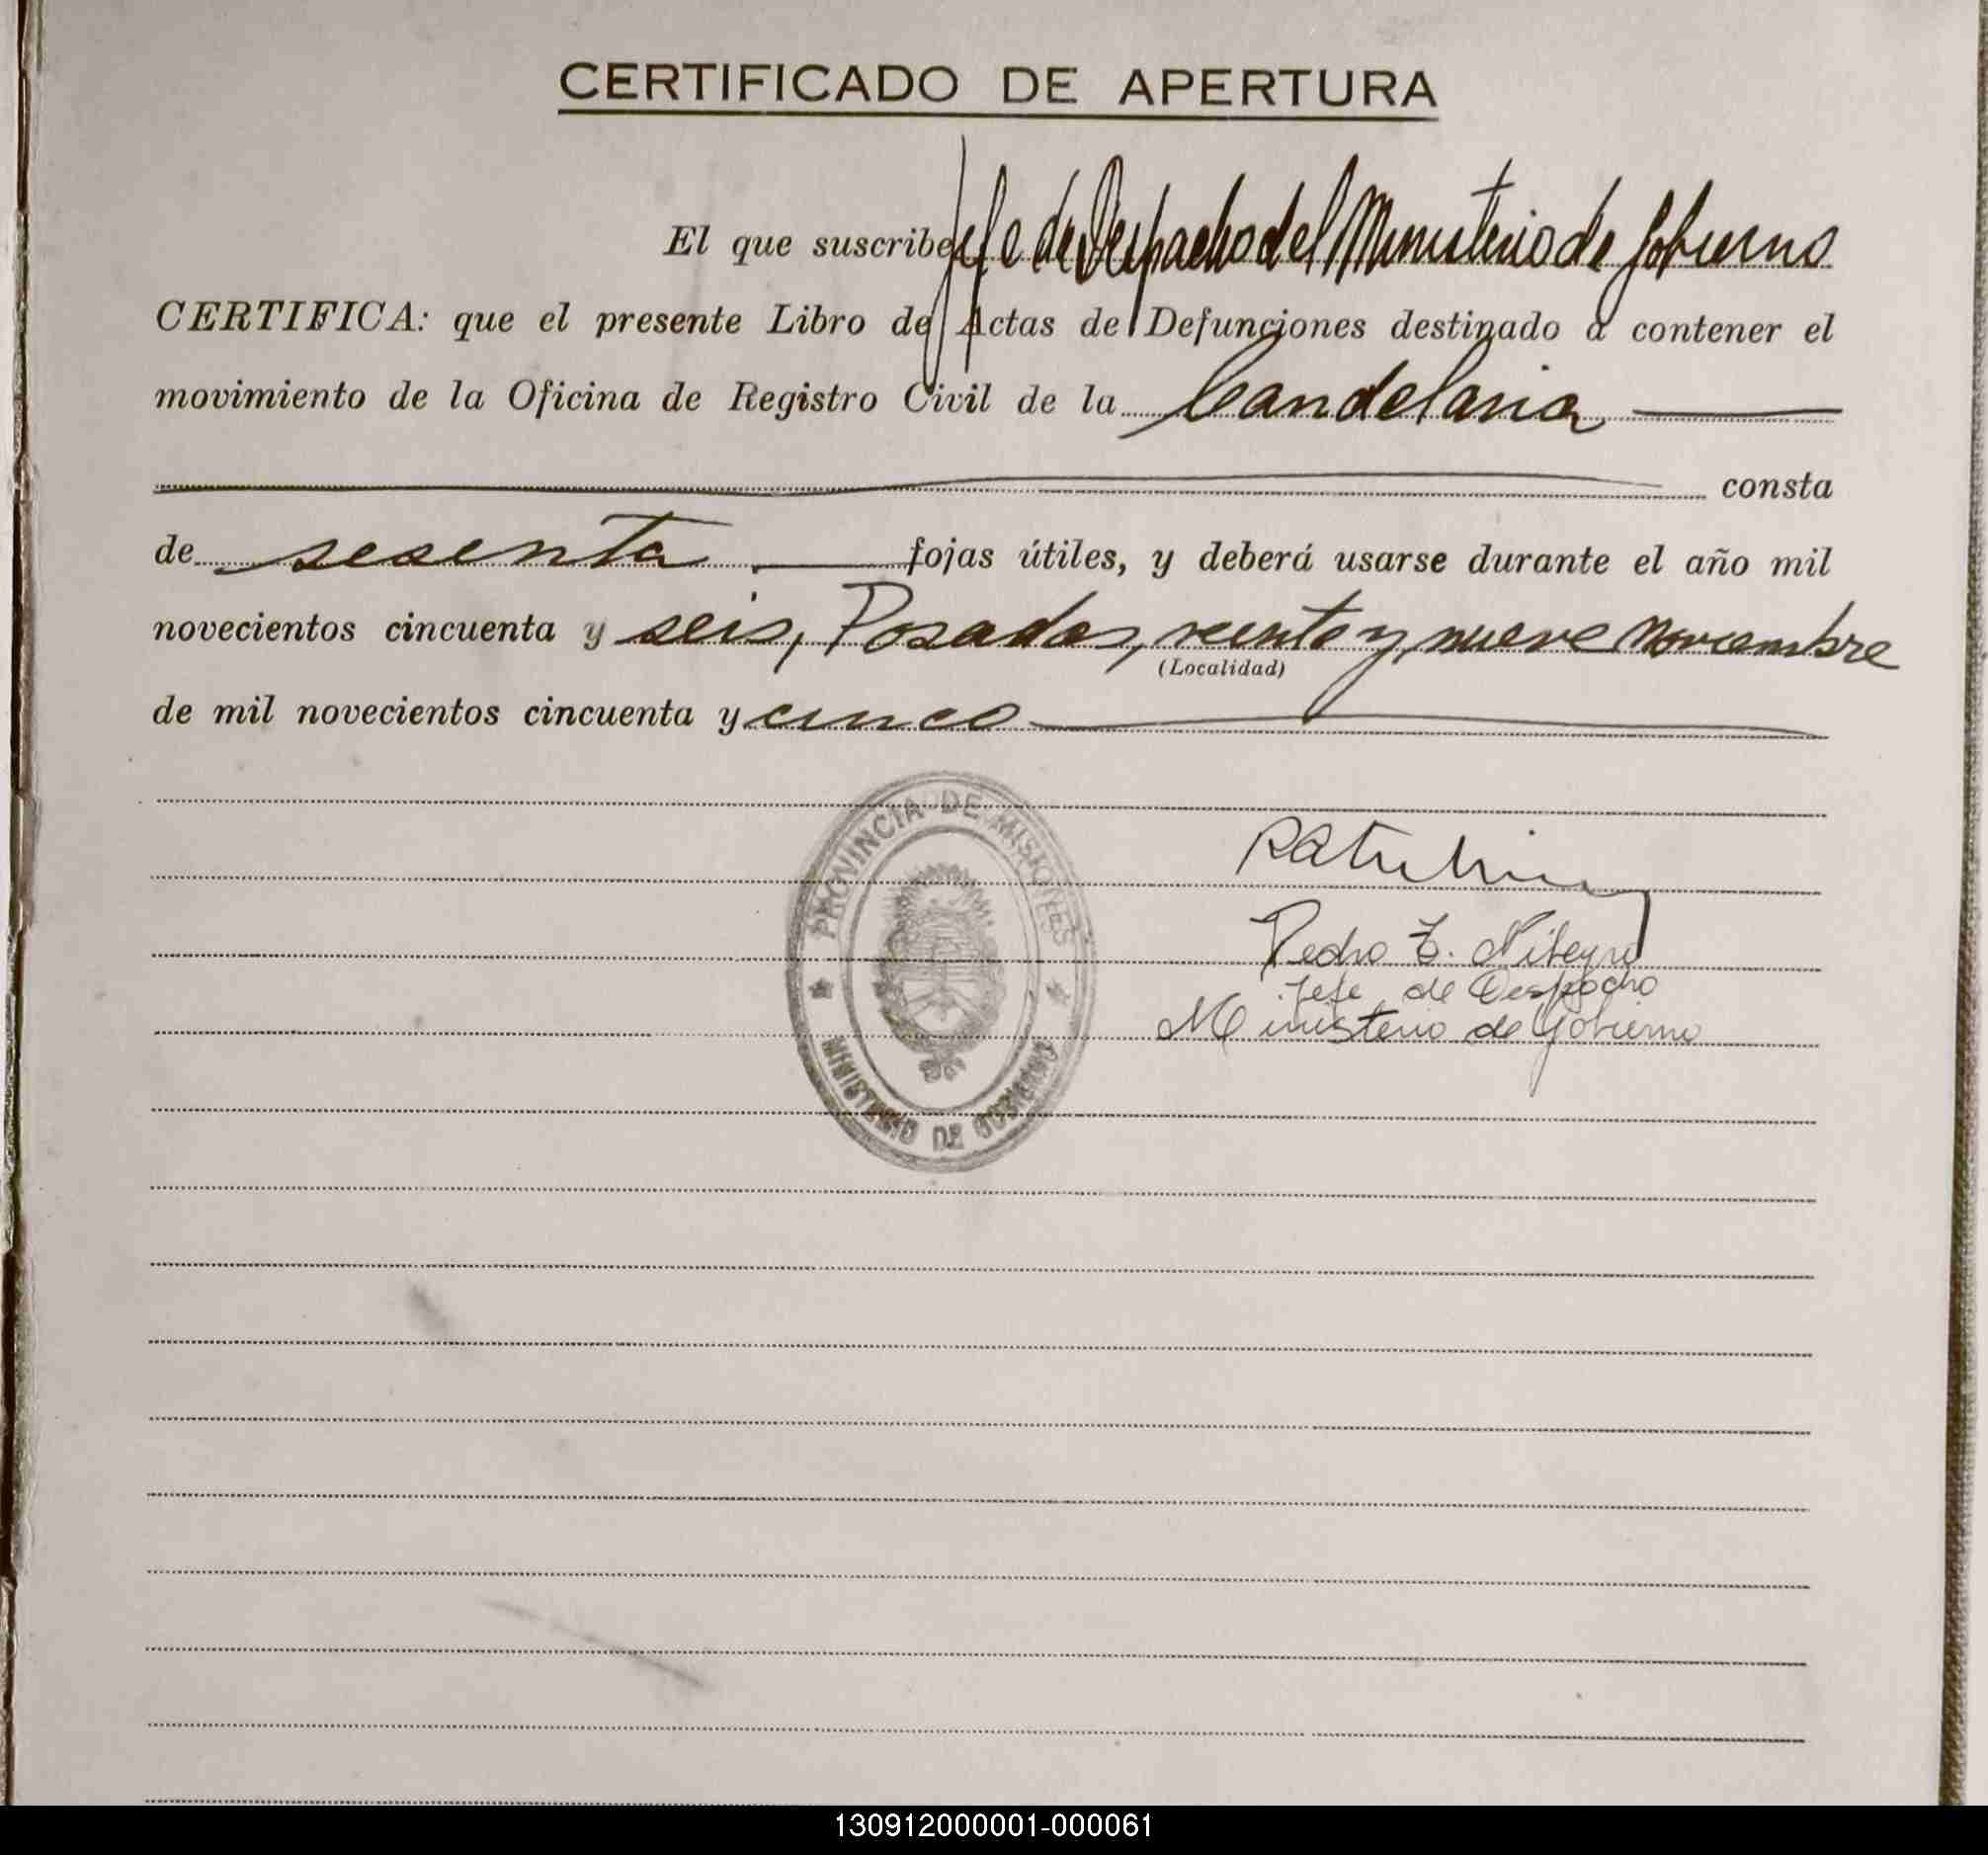 CERTIFICADO DE APERTURA
El que suscribe Jefe de Despacho del Ministerio de Gobierno
CERTIFICA: que el presente Libro de Actas de Defunciones destinado a contener el
movimiento de la Oficina de Registro Civil de la Candelaria
consta
de sesenta fojas útiles, y deberá usarse durante el año mil
novecientos cincuenta y seis, Posadas, veinte y nueve Noviembre
(Localidad)
de mil novecientos cincuenta y cinco
PROVINCIA DE MISIONES
MINISTERIO DE GOBIERNO
Pedro
Jefe de Despacho
Ministerio de Gobierno
130912000001-000061